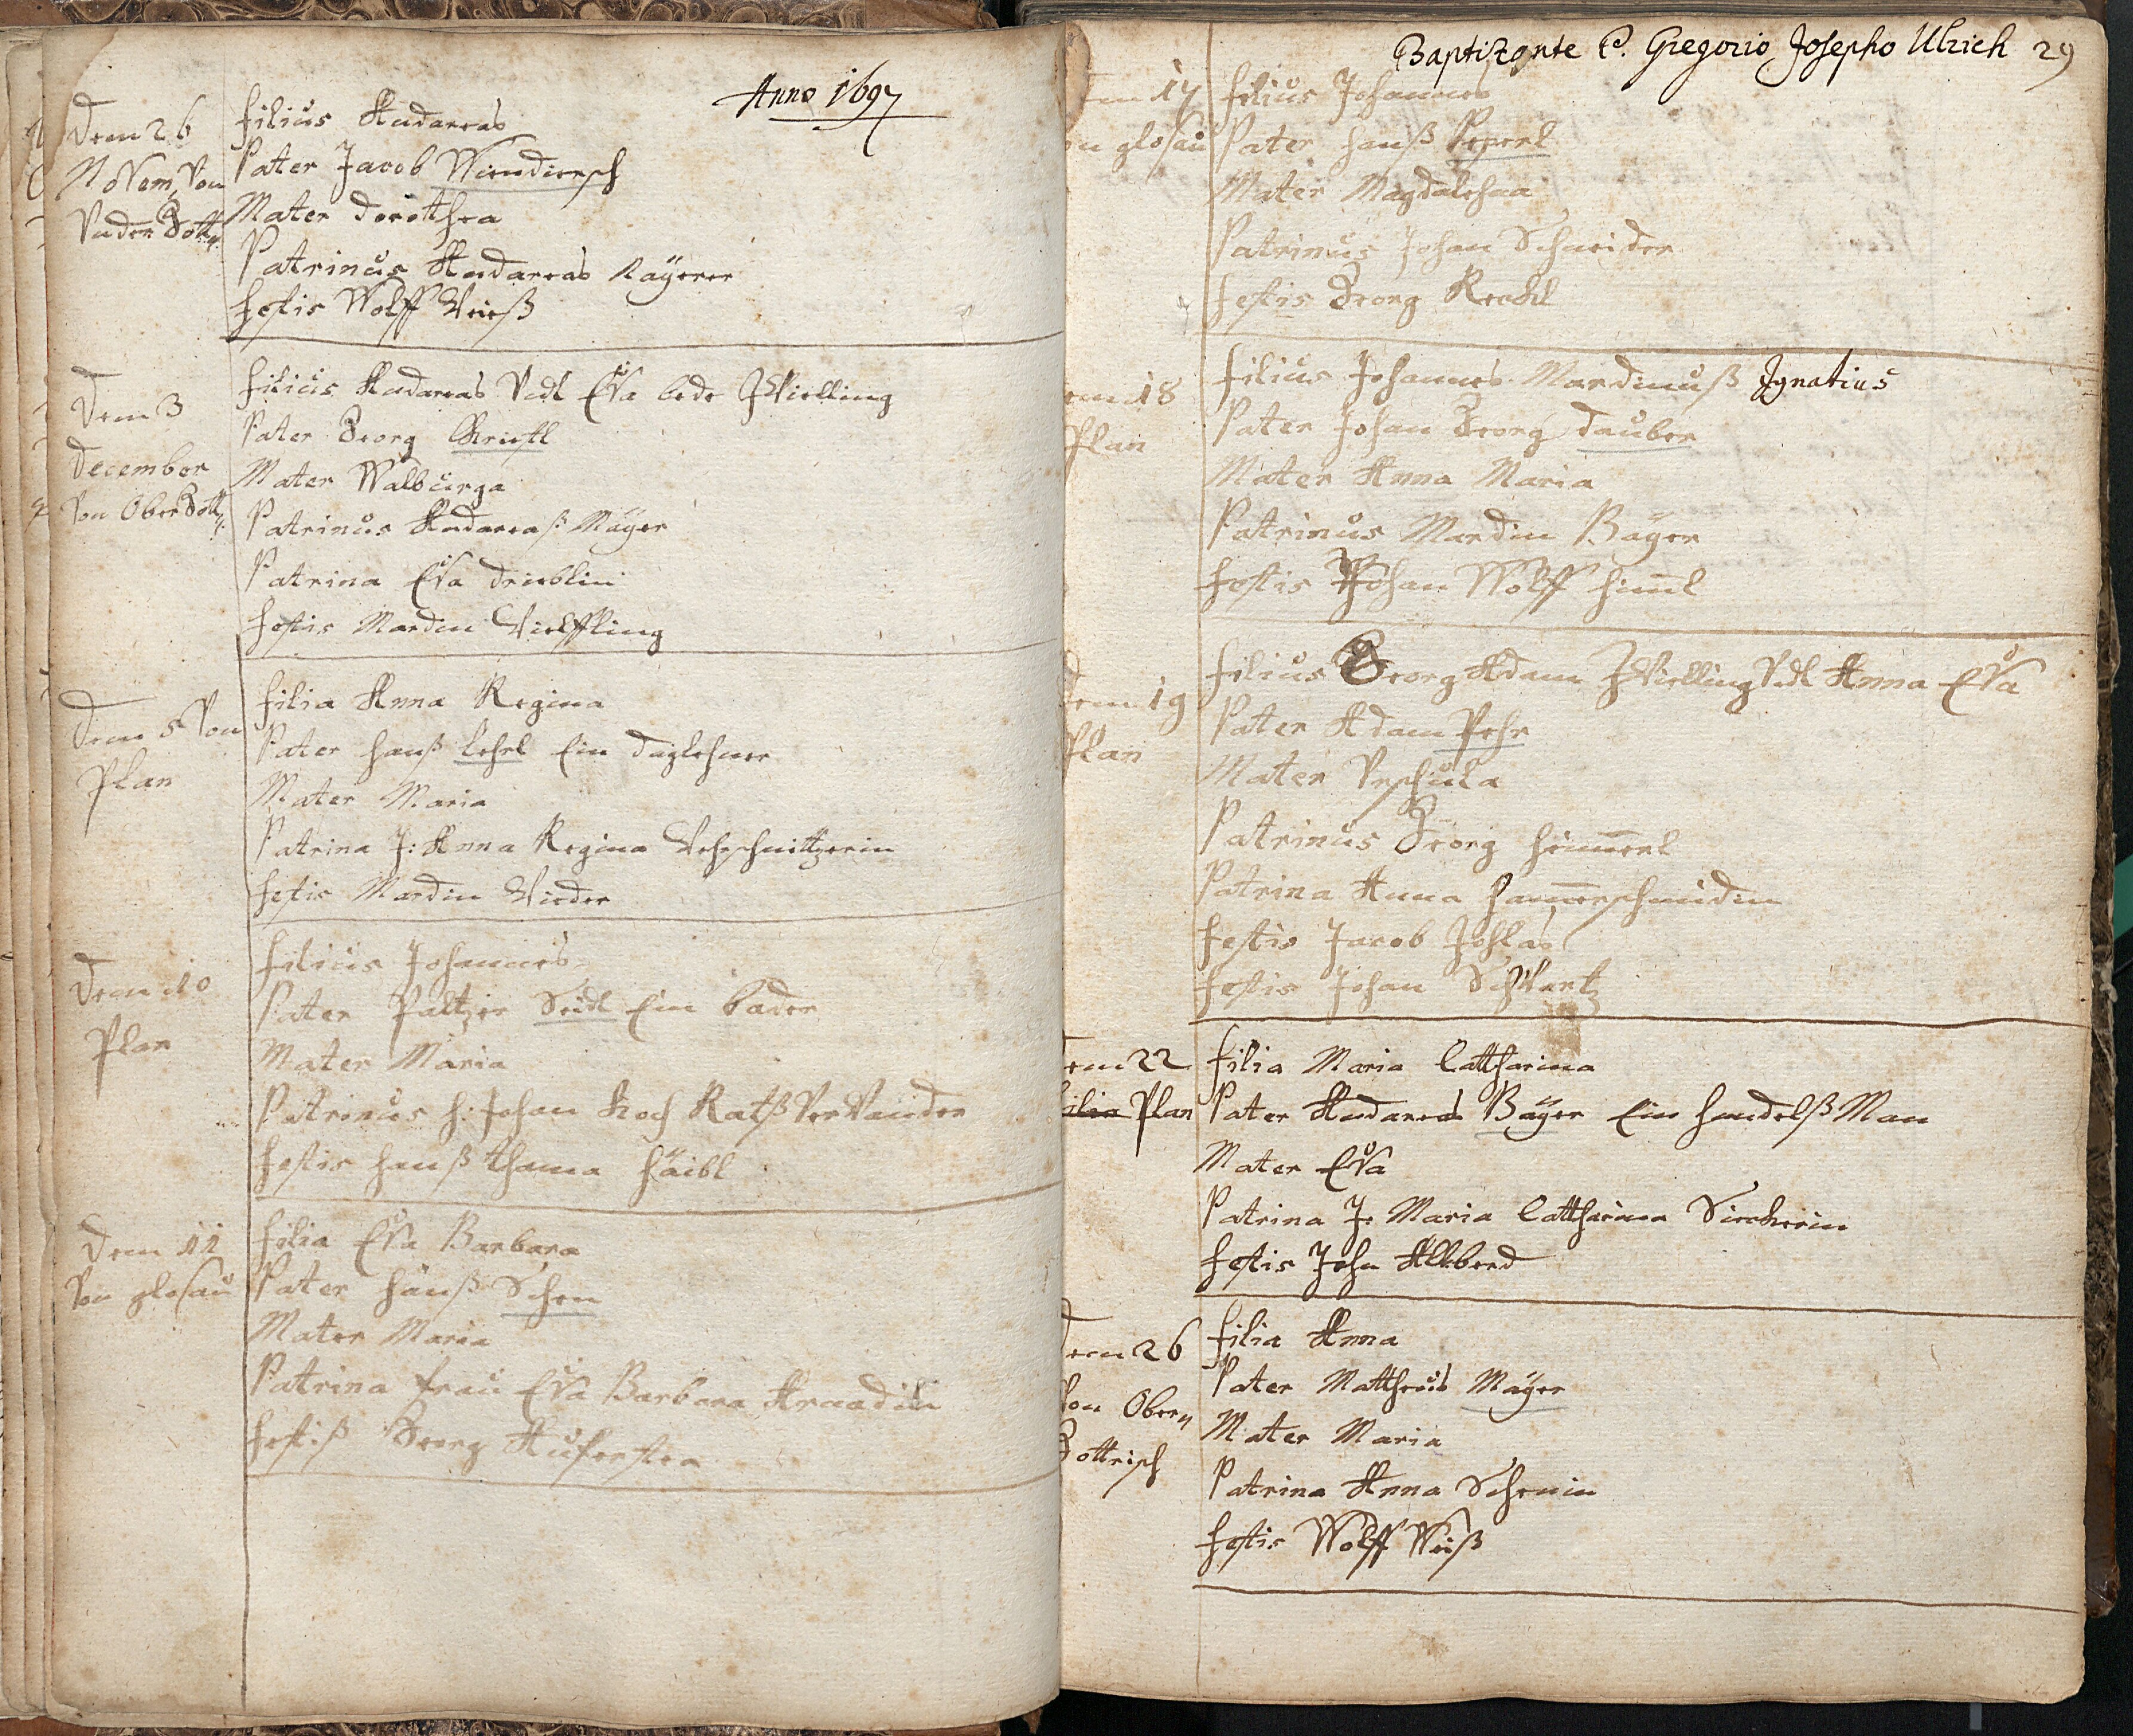 Anno 1697
Dem 26
Novem, Von
Under Gott
filius Andareas
Pater Jacob Wiendiersch
Mater Dorothea
Patrinus Andareas Kaÿerer
testis Wolff Weiß
Dem 3
December
Von Ober Gott
filius Andareas Undt Eva bede Zwielling
Pater Georg Christl
Mater Walburga
Patrinus Andareaß Maÿer
Patrina Eva Drieblin
testis Mardin Wielffling
Dem 5 Von
Plan
filia Anna Regina
Pater Hanß Lehrl Ein Daglehner
Mater Maria
Patrina J: Anna Regina
testis Mardin Wieder
Dem 10
Plan
filius Johannes
Pater Paltzer Seidl Ein bader
Mater Maria
Patrinus H: Johan Koch Rathß Verwander
testis Hanß Thama Häibl
Dem 11
Von glosau
filia Eva Barbara
Pater Hanß Schen
Mater Maria
Patrina frau Eva Barbara
testiß Georg
Baptizante P. Gregorio Josepho Ulrich 29
17
glosau
filius Johannes
Pater Hanß Peperl
Mater Magdalehna
Patrinus Johan Schneider
testis Georg Reckl
18
Plan
filius Johannes Mardinuß Ignatius
Pater Johan Georg Dauber
Mater Anna Maria
Patrinus Mardin Baÿer
testis Johan Wolff Himl
19
Plan
filius Georg Adam Zwielling Undt Anna Eva
Pater Adam Pehr
Mater Urschula
Patrinus Georg Himerl
Patrina Anna Hamerschmidin
testis Jacob
testis Johan Schwartz
22
Plan
filia Maria Cattharina
Pater Andareas Baÿer Ein Handelß Man
Mater Eva
Patrina J: Maria Cattharina
testis John Allberd
26
Von Ober
Gottrisch
filia Anna
Pater Mattheus Maÿer
Mater Maria
Patrina Anna Schenin
testis Wolff Weiß